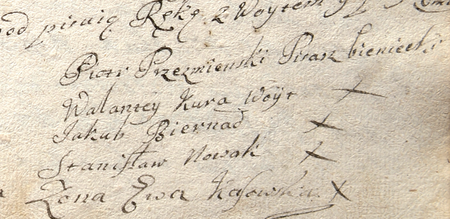 od pisuię Rękę z Woytem
Piotr Przezmienski Pisarz bieniecki
Walantey Kura Woÿt X
Jakub Biernad X
Stanisław Nowak X
Żona Ewa Kasowska X